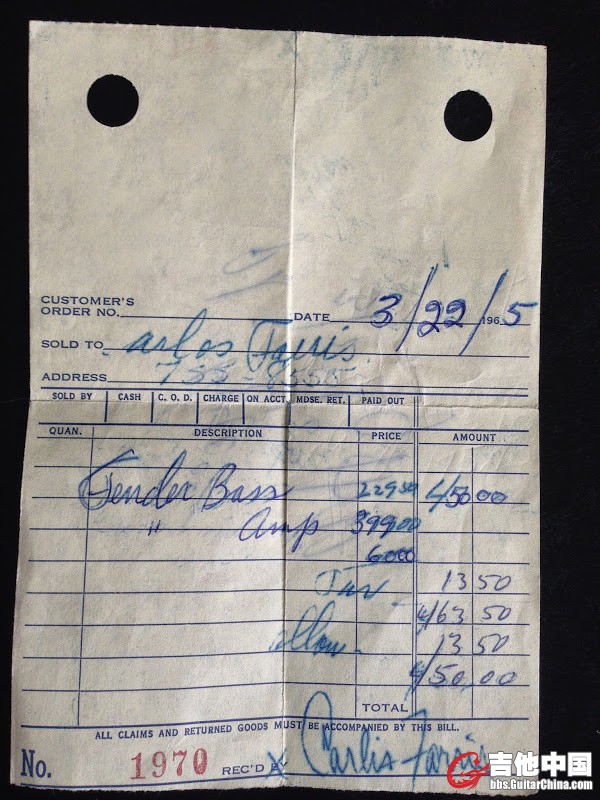 CUSTOMER'S
ORDER NO. DATE 3/22/1965
SOLD TO arlos Farris
ADDRESS 755-8555
SOLD BY CASH C. O. D. CHARGE ON ACCT. MDSE. RET. PAID OUT
QUAN. DESCRIPTION PRICE AMOUNT
Fender Bass 22950 450 00
" Amp 39900
6000
Tax 13 50
463 50
allow- 13 50
450,00
TOTAL
ALL CLAIMS AND RETURNED GOODS MUST BE ACCOMPANIED BY THIS BILL.
No. 1970 REC'D BY X Carlis Farris
吉他中国
bbs.GuitarChina.com